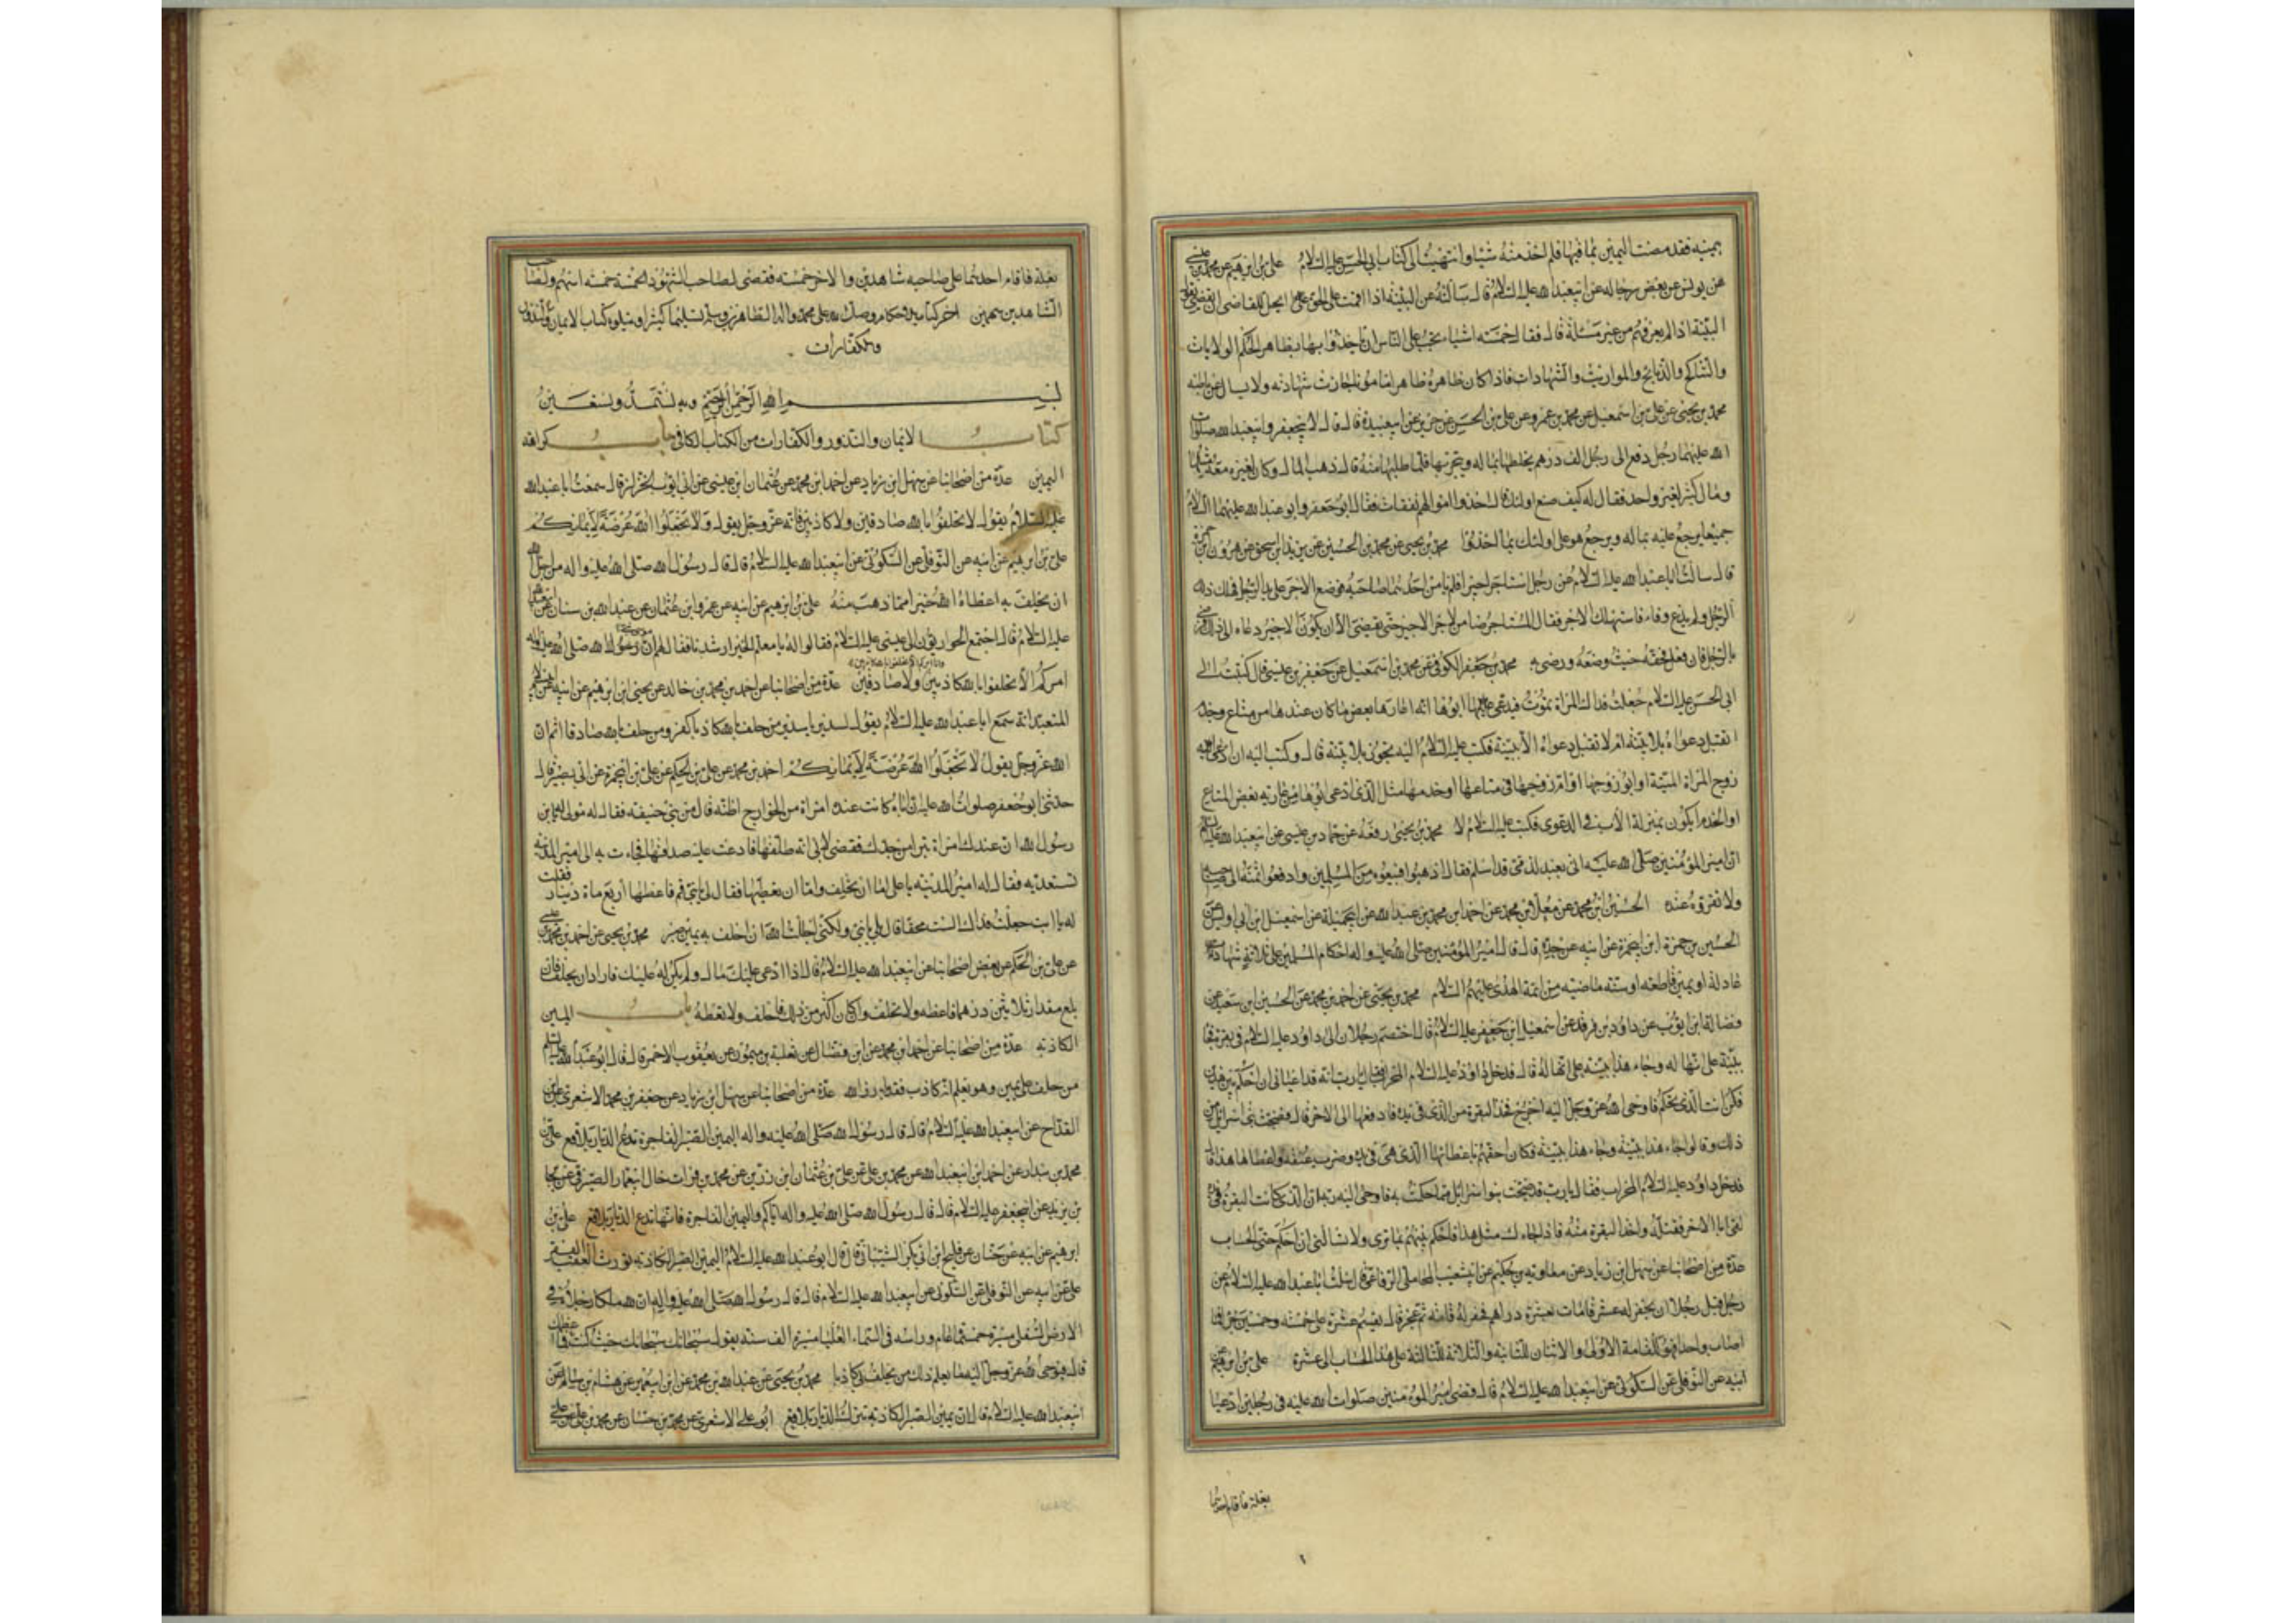 بيمينه فقد مضت اليمين بما فيها فلم اخذ منه شيئا وانتهيت الى كتاب ابي الحسن عليه السلام علي بن ابرهيم عن محمد بن عيسى
عن يونس عن بعض رجاله عن ابيعبد الله عليه السلام قال سألته عن البينة اذا اقمت على الحق ايحل للقاضى ان يقضى بقول
البينة اذا لم يعرفهم من غير مسئلة قال فقال خمسة اشياء يجب على الناس ان ياخذوا بها بظاهر الحكم الولايات
والتناكح والذبايح والمواريث والشهادات فاذا كان ظاهره ظاهرا مامونا جازت شهادته ولا يسال عن باطنه
محمد بن يحيى عن علي بن اسمعيل عن محمد بن عمرو عن علي بن الحسين عن حريز عن ابيعبيدة قال قلت لابيجعفر وابيعبد الله صلوات
الله عليهما رجل دفع الى رجل الف درهم يخلطها بماله ويتجر بها فلما طلبها منه قال ذهب المال وكان لغيره معه مثلها
ومال كثير لغير واحد فقال له كيف صنع اولئك قال اخذوا اموالهم نفقات فقال ابو جعفر وابو عبد الله عليهما السلام
جميعا يرجع عليه بماله ويرجع هو على اولئك بما اخذوا محمد بن يحيى عن محمد بن الحسين عن يزيد ابن اسحق عن هرون بن حمزة
قال سالت ابا عبد الله عليه السلام عن رجل استاجر اجيرا فلم يامن احدهما صاحبه فوضع الاجر على يد رجل فهلك ذلك
الرجل ولم يدع وفاء فاستهلك الاجر فقال المستاجر ضامن لاجر الاجير حتى يقضى الا ان يكون الاجير دعاه الى ذلك فرضى
بالرجل فان فعل فحقه حيث وضعه ورضى به محمد بن جعفر الكوفى عن محمد بن اسمعيل عن جعفر بن عيسى قال كتبت الى
ابى الحسن عليه السلام جعلت فداك المراة تموت فيدعى ابوها انه اعارها بعض ما كان عندها من متاع وخدم
اتقبل دعواه بلا بينة ام لا تقبل دعواه الا ببينة فكتب عليه السلام اليه يجوز بلا بينة قال وكتبت اليه ان ادعى
زوج المراة الميتة او ابو زوجها او ام زوجها فى متاعها او خدمها مثل الذى ادعى ابوها من عارية بعض المتاع
او الخدم ايكون بمنزلة الاب فى الدعوى فكتب عليه السلام لا محمد بن يحيى رفعه عن حماد بن عيسى عن ابيعبد الله عليه السلام
ان امير المؤمنين صلى الله عليه اتى بعبد لذمى قد اسلم فقال اذهبوا فبيعوه من المسلمين وادفعوا ثمنه الى صاحبه
ولا تقروه عنده الحسين ابن محمد عن معلى بن محمد عن احمد ابن محمد بن عبد الله عن ابيجميلة عن اسمعيل ابن ابى اويس عن
الحسين بن حمزة ابن ابيحمزة عن ابيه عن جده قال قال امير المؤمنين صلى الله عليه واله احكام المسلمين على ثلاثة شهادة
عادلة او يمين قاطعة او سنة ماضية من ائمة الهدى عليهم السلام محمد بن يحيى عن احمد بن محمد عن الحسين ابن سعيد عن
فضالة ابن ايوب عن داود بن فرقد عن اسمعيل ابن جعفر عليه السلام قال اختصم رجلان الى داود عليه السلام فى بقرة
بينة على انها له وجاء هذا ببينة على انها له قال فدخل داود عليه السلام المحراب فقال يا رب انه قد اعيانى ان احكم بين هذين
فكن انت الذى تحكم فاوحى الله عز وجل اليه اخرج فخذ البقرة من الذى فى يده فادفعها الى الاخر قال فضجت بنى اسرائيل من
ذلك وقالوا جاء هذا ببينة وجاء هذا ببينة فكان احقهم باعطائها الذى هى فى يده وضرب عنقه واعطاها هذا قال
فدخل داود عليه السلام المحراب فقال يا رب قد ضجت بنوا اسرائيل مما حكمت به فاوحى اليه ربه ان الذى كانت البقرة فى يده
لقى ابا الاخر فقتله واخذ البقرة منه فاذا جاءك مثل هذا فاحكم بينهم بما ترى ولا تسالنى ان احكم حتى الحساب
عدة من اصحابنا عن سهل ابن زياد عن معاوية بن حكيم عن ابيشعيب المحاملى الرفاعى قال سئلت ابا عبد الله عليه السلام عن
رجل قبل رجلا ان يحفر له عشر قامات بعشرة دراهم فحفر له قامة ثم عجز قال يقسم عشرة على خمسة وخمسين جزءا فما
اصاب واحد فهو للقامة الاولى والاثنان للثانية والثلاثة للثالثة على هذا الحساب الى عشرة علي بن ابرهيم
ابيه عن النوفلى عن السكونى عن ابيعبد الله عليه السلام قال قضى امير المؤمنين صلوات الله عليه فى رجلين ادعيا
بغلة فاقام احدهما
بغلة فاقام احدهما على صاحبه شاهدين والاخر خمسة فقضى لصاحب الشهود الخمسة خمسة اسهم ولصاحب
الشاهدين سهمين اخر كتاب الاحكام وصلى الله على محمد واله الطاهرين وسلم تسليما كثيرا ويتلوه كتاب الايمان والنذور
والكفارات
بسم الله الرحمن الرحيم وبه نستمد ونستعين
كتاب الايمان والنذور والكفارات من الكتاب الكافى باب كراهة
اليمين عدة من اصحابنا عن سهل ابن زياد عن احمد ابن محمد عن عثمان ابن عيسى عن ابى ايوب الخزاز قال سمعت ابا عبد الله
عليه السلام يقول لا تحلفوا بالله صادقين ولا كاذبين فانه عز وجل يقول ولا تجعلوا الله عرضة لايمانكم
على بن ابرهيم عن ابيه عن النوفلى عن السكونى عن ابيعبد الله عليه السلام قال قال رسول الله صلى الله عليه واله من اجل الله
ان يحلف به اعطاه الله خيرا مما ذهب منه على بن ابرهيم عن ابيه عن عمرو ابن عثمان عن عبد الله بن سنان
عليه السلام قال اجتمع الحواريون الى عيسى عليه السلام فقالوا له يا معلم الخير ارشدنا فقال لهم ان
امركم الا تحلفوا بالله كاذبين ولا صادقين عدة من اصحابنا عن احمد بن محمد بن خالد عن يحيى ابن ابرهيم عن ابيه
المتعبد انه سمع ابا عبد الله عليه السلام يقول لسدير يا سدير من حلف بالله كاذبا كفر ومن حلف بالله صادقا اثم ان
الله عز وجل يقول لا تجعلوا الله عرضة لايمانكم احمد بن محمد عن على بن الحكم عن على بن ابيحمزة عن ابى بصير قال
حدثنى ابو جعفر صلوات الله عليه ان اباه كانت عنده امراة من الخوارج اظنه قال من بنى حنيفة فقال له مولى له يابن
رسول الله ان عندك امراة تبرا من جدك فقضى لابى انه طلقها فادعت عليه صداقها فجاءت به الى امير المدينة
تستعديه فقال له امير المدينة يا على اما ان تحلف واما ان تعطيها فقال لى يا بنى قم فاعطها اربع ماة دينار فقلت
له يا ابت جعلت فداك الست محقا قال بلى يا بنى ولكنى اجللت الله ان احلف به يمين صبر محمد بن يحيى عن احمد بن محمد بن عيسى
عن على بن الحكم عن بعض اصحابنا عن ابيعبد الله عليه السلام قال اذا ادعى عليك مال ولم يكن له عليك فاراد ان يحلفك فان
بلغ مقدار ثلاثين درهما فاعطه ولا تحلف وان كان اكثر من ذلك فاحلف ولا تعطه باب اليمين
الكاذبة عدة من اصحابنا عن احمد ابن محمد عن ابن فضال عن ثعلبة بن ميمون عن يعقوب الاحمر قال قال ابو عبد الله عليه السلام
من حلف على يمين وهو يعلم انه كاذب فقد بارز الله عدة من اصحابنا عن سهل ابن زياد عن جعفر بن محمد الاشعرى عن ابن
القداح عن ابيعبد الله عليه السلام قال قال رسول الله صلى الله عليه واله اليمين الصبر الفاجرة تدع الديار بلاقع على بن
محمد بن بندار عن احمد ابن ابيعبد الله عن محمد بن على عن على بن عثمان ابن رزين عن محمد بن فرات خال ابيعمار الصيرفى عن جابر
بن يزيد عن ابيجعفر عليه السلام قال قال رسول الله صلى الله عليه واله اياكم واليمين الفاجرة فانها تدع الديار بلاقع على بن
ابرهيم عن ابيه عن حنان عن فليح ابن ابى بكر الشيبانى قال قال ابو عبد الله عليه السلام اليمين الصبر الكاذبة تورث العقب الفقر
على عن ابيه عن النوفلى عن السكونى عن ابيعبد الله عليه السلام قال قال رسول الله صلى الله عليه واله ان لله ملكا رجلاه فى
الارض السفلى مسيرة خمسمائة عام وراسه فى السماء العليا مسيرة الف سنة يقول سبحانك سبحانك حيث كنت فما اعظمك
قال فيوحى الله عز وجل اليه ما يعلم ذلك من يحلف بى كاذبا محمد بن يحيى عن عبد الله بن محمد عن ابن ابيعمير عن هشام بن سالم عن
ابيعبد الله عليه السلام قال ان يمين الصبر الكاذبة تترك الديار بلاقع ابو على الاشعرى عن محمد بن حسان عن محمد بن على عن على